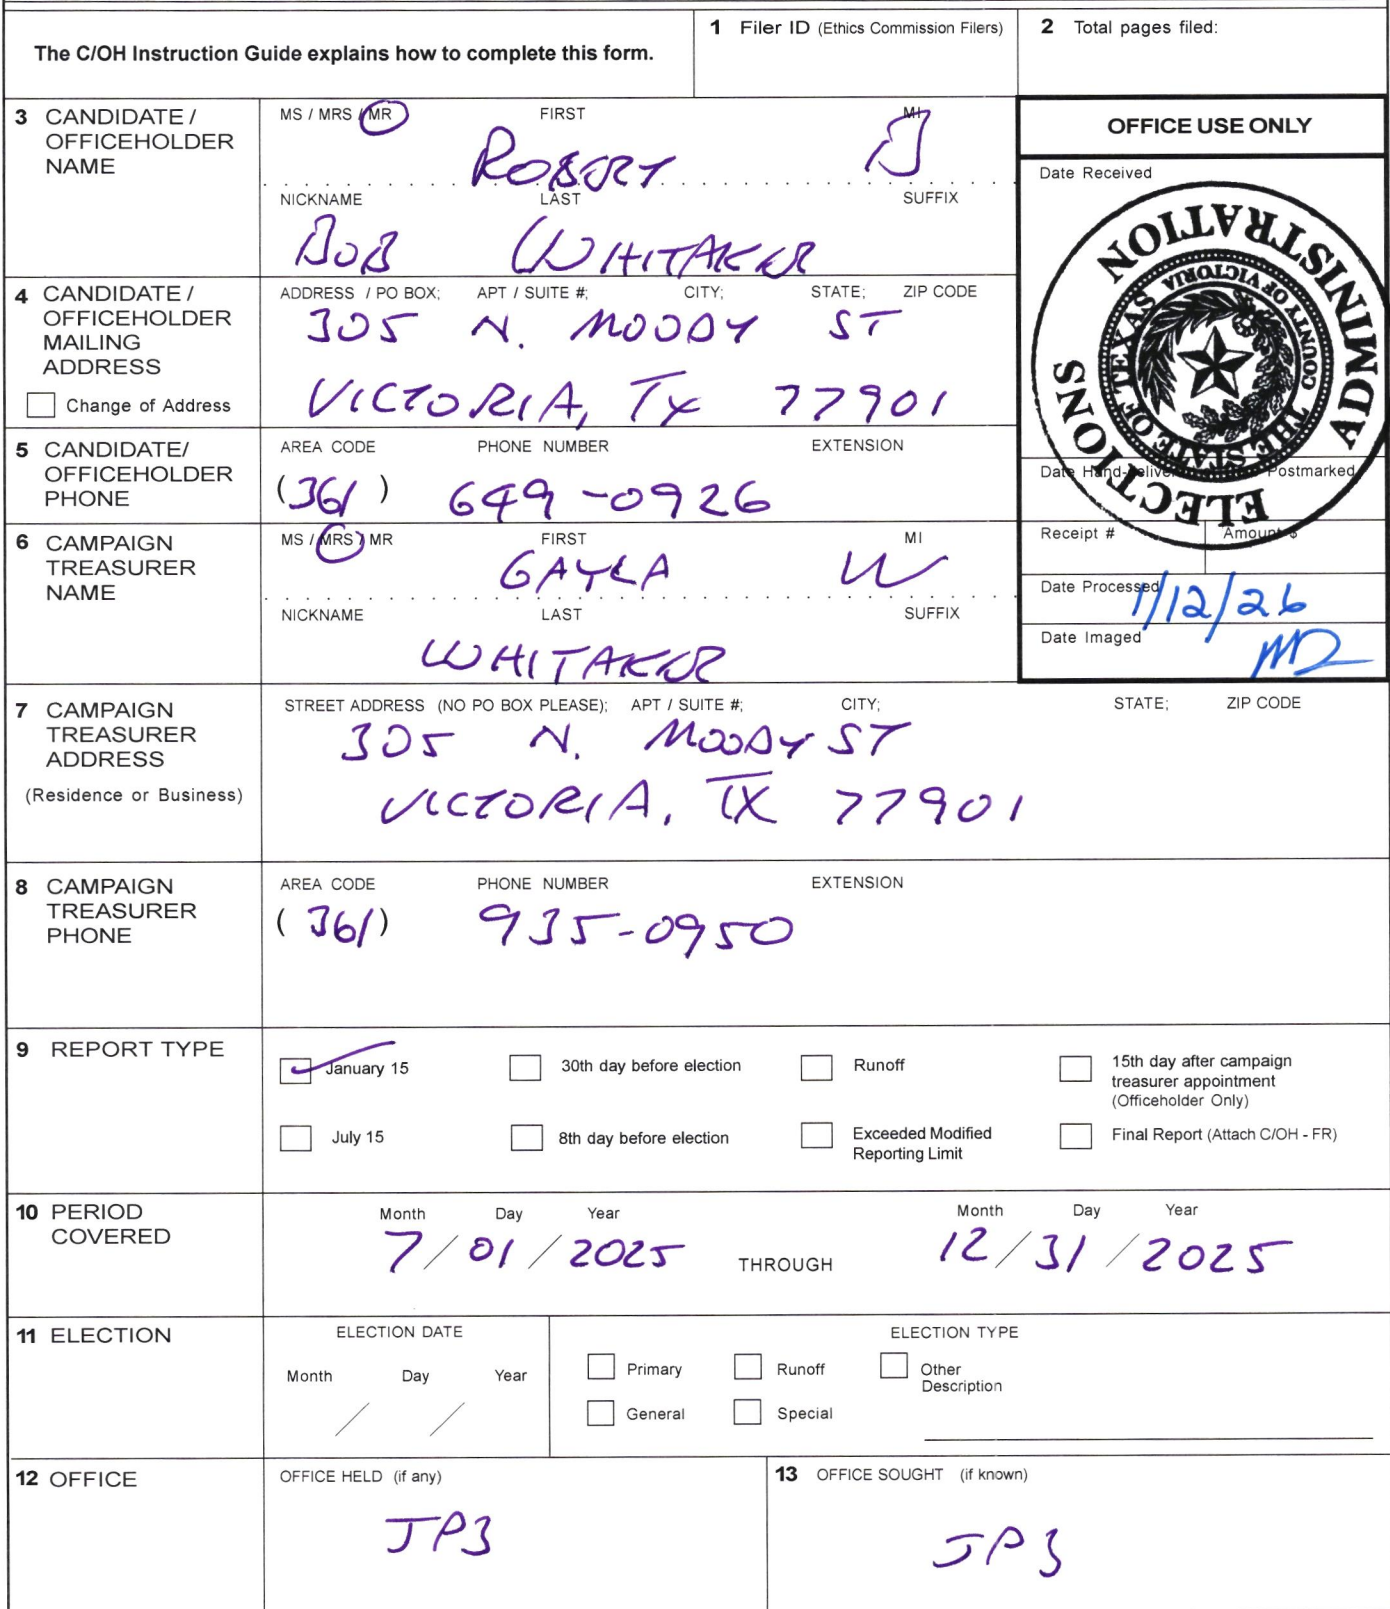 The C/OH Instruction Guide explains how to complete this form.
1 Filer ID (Ethics Commission Filers)
2 Total pages filed:
3 CANDIDATE / OFFICEHOLDER NAME
MS / MRS / MR FIRST MI
ROBERT B
NICKNAME LAST SUFFIX
BOB WHITAKER
OFFICE USE ONLY
Date Received
ELECTIONS ADMINISTRATION
THE STATE OF TEXAS COUNTY OF VICTORIA
Date Hand-delivered or Date Postmarked
Receipt # Amount $
Date Processed
1/12/26
Date Imaged
MD
4 CANDIDATE / OFFICEHOLDER MAILING ADDRESS
Change of Address
ADDRESS / PO BOX; APT / SUITE #; CITY; STATE; ZIP CODE
305 N. MOODY ST
VICTORIA, TX 77901
5 CANDIDATE/ OFFICEHOLDER PHONE
AREA CODE PHONE NUMBER EXTENSION
(361) 649-0926
6 CAMPAIGN TREASURER NAME
MS / MRS / MR FIRST MI
GAYLA W
NICKNAME LAST SUFFIX
WHITAKER
7 CAMPAIGN TREASURER ADDRESS
(Residence or Business)
STREET ADDRESS (NO PO BOX PLEASE); APT / SUITE #; CITY; STATE; ZIP CODE
305 N. MOODY ST
VICTORIA, TX 77901
8 CAMPAIGN TREASURER PHONE
AREA CODE PHONE NUMBER EXTENSION
(361) 935-0950
9 REPORT TYPE
January 15
30th day before election
Runoff
15th day after campaign treasurer appointment (Officeholder Only)
July 15
8th day before election
Exceeded Modified Reporting Limit
Final Report (Attach C/OH - FR)
10 PERIOD COVERED
Month Day Year
7/01/2025
THROUGH
Month Day Year
12/31/2025
11 ELECTION
ELECTION DATE
Month Day Year
/ /
ELECTION TYPE
Primary
Runoff
Other Description
General
Special
12 OFFICE
OFFICE HELD (if any)
JP3
13 OFFICE SOUGHT (if known)
JP3